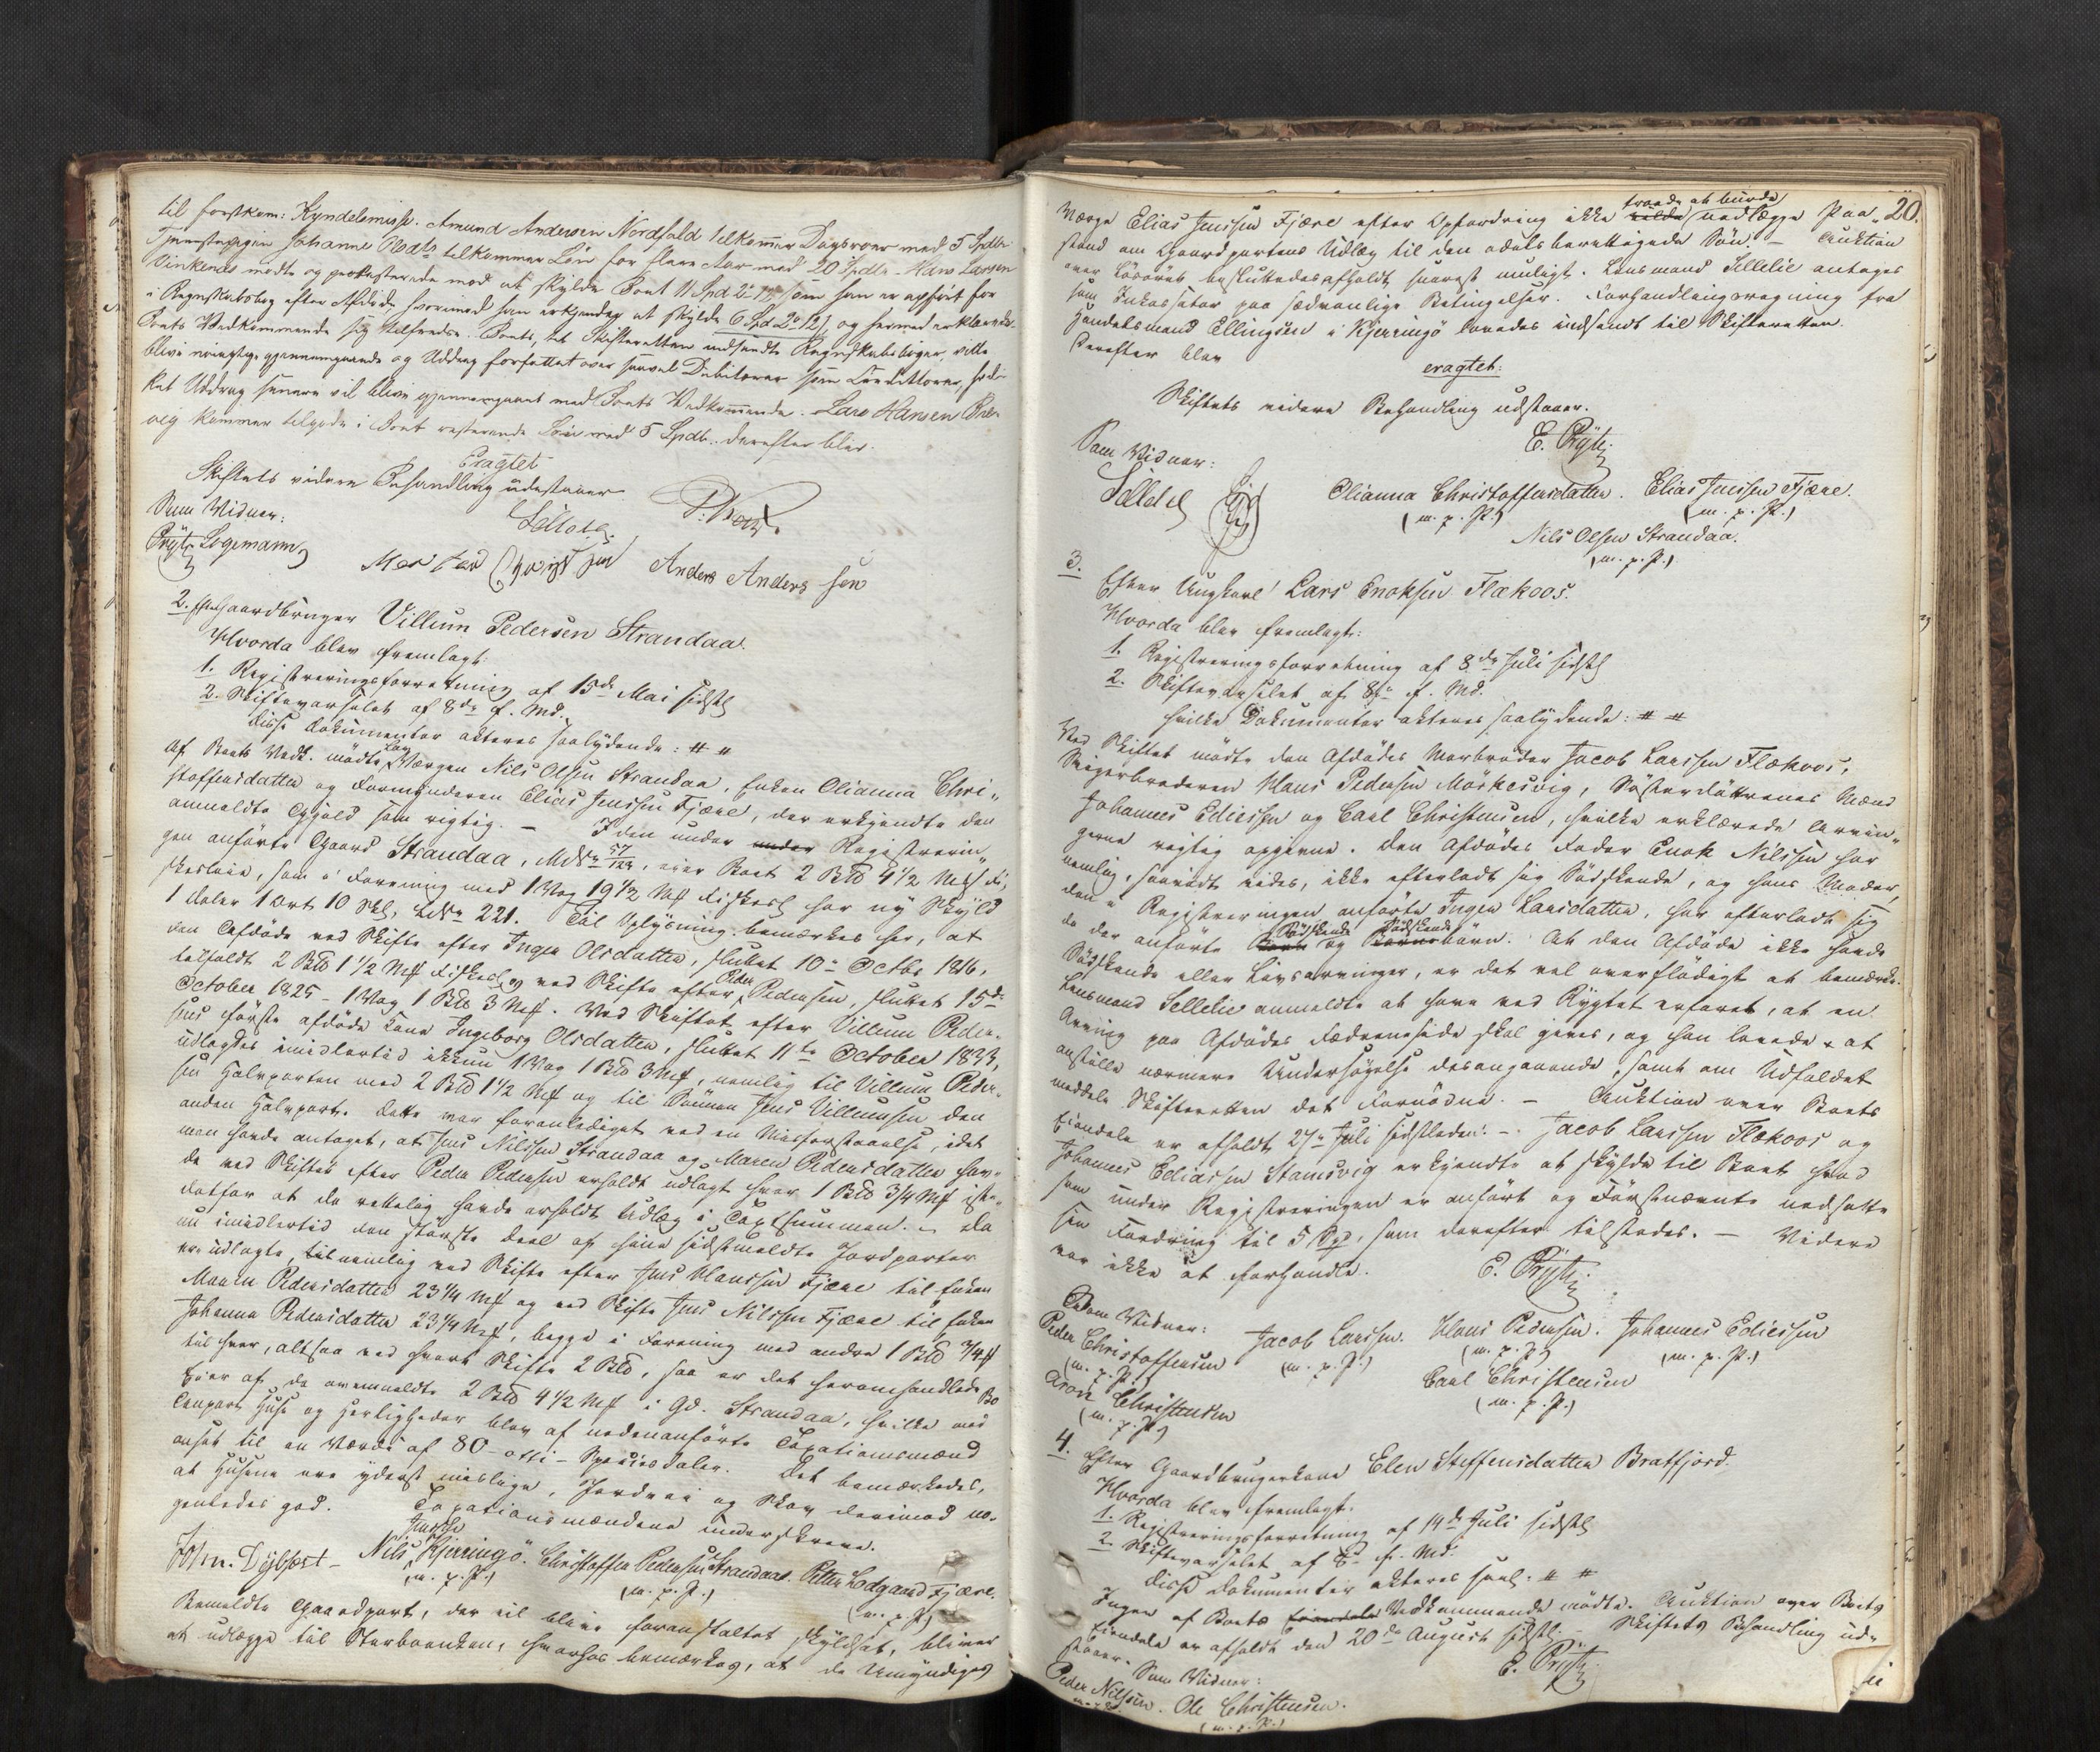 til førstkom: Kyndelsmisse. Amund Andersen Nordfold tilkommer Dagroer med 5 Spdlr
Tjenestepigen Johanne Medts tilkommer Løn for flere Aar med 20 Spdlr. Hans Larsen
Vinkenæs mødte og protesterede mod at skylde Boet 11 Spd som han er opført for
i Regnskabsbog efter Afdøde, hvorimod han erkjender at skylde 6 Spd 2 12 og hermed erklærede
Boets Vedkommende sig tilfredse. Boets, til Skifteretten indsendte Regnskabsbøger, ville
blive nøiagtig gjennemgaaede og Uddrag forfattet over saavel Debitorer som Creditorer, hvil-
ket Uddrag senere vil blive gjennemgaaet med Boets Vedkommende. Lars Hansen
kommer tilgode i Boet resterende Løn med 5 Spdlr. derefter blev
Eragtet
Skiftets videre Behandling udestaaer
Som Vidner:
Prytz Logemann
Anders Andersen
2. Efter Gaardbruger Villum Pedersen Strandaa.
Hvorda blev fremlagt:
1. Registreringsforretning af 15de Mai sidstl
2. Skiftevarselet af 8de f. Md.
disse Dokumenter akteres saalydende: # #
Af Boets Vedk. mødte Lav Værgen Nils Olsen Strandaa, Enken Olianna Chri-
stoffersdatter og Formynderen Elias Jenssen Fjære, der erkjendte den
anmeldte Gjeld som rigtig. — I den under under Registrerin-
gen anførte Gaard Strandaa, MNr 57/124, eier Boet 2 Bpd 4 1/2 Mrk Fi-
skesleie, som i Forening med 1 Vog 19 1/2 Mrk Fiskesl har ny Skyld
1 Daler 1 Ort 10 Skl, LNr 221. Til Oplysning bemærkes her, at
den Afdøde ved Skifte efter Inger Olsdatter, sluttet 10de Octbr 1816,
tilfaldt 2 Bpd 1 1/2 Mrk Fiskesl og ved Skifte efter Peder Pedersen, sluttet 15de
October 1825 – 1 Vog 1 Bpd 3 Mrk. Ved Skiftet efter Villum Peder-
sens første afdøde Kone Ingeborg Olsdatter, sluttet 11te October 1833,
udlagdes imidlertid ikkun 1 Vog 1 Bpd 3 Mrk, nemlig til Villum Peder-
sen Halvparten med 2 Bpd 1 1/2 Mrk og til Sønnen Jens Villumsen den
anden Halvpart. Dette var foranlediget ved en Misforstaaelse, idet
man havde antaget, at Jens Nilssen Strandaa og Maren Pedersdatter hav-
de ved Skiftet efter Peder Pedersen erholdt udlagt hver 1 Bpd 3/4 Mrk iste-
detfor at de rettelig havde erholdt Udlæg i Taxtsummen. – Da
nu imidlertid den største Deel af hine sidstmeldte Jordparter
ere udlagte, nemlig ved Skifte efter Jens Hanssen Fjære til Enken
Maren Pedersdatter 23 1/4 Mrk og ved Skifte Jens Nilssen Fjære til Enken
Johanna Pedersdatter 23 1/4 Mrk, begge i Forening med andre 1 Bpd 3/4 Mrk
til hver, altsaa ved hvert Skifte 2 Bpd, saa er det heromhandlede Bo
Eier af de ovenmeldte 2 Bpd 4 1/2 Mrk i Gd. Strandaa, hvilke med
Anpart Huse og Herligheder blev af nedenanførte Taxationsmænd
ansat til en Værdi af 80 – otti – Speciesdaler. Det bemærkedes,
at Husene ere yderst maadelige, Jordvei og Skov derimod no-
genledes god. Taxationsmændene underskreve.
John. Dybfest – Nils Jenssen Kjerringø. Christoffer Pedersen Strandaa. Petter Lodgaard Fjære.
(m. p. P.) (m. p. P.) (m. p. P.)
Bemeldte Gaardpart, der vil blive foranstaltet skyldsat, bliver
at udlægge til Sterboenken, hvorhos bemærkes, at de Umyndiges
20.
Værge Elias Jenssen Fjære efter Opfordring ikke vilde troede at burde nedlægge Paa-
stand om Gaardpartens Udlæg til den odelsberettigede Søn. – Auktion
over Løsøret besluttedes afholdt snarest muligt. Lensmand Sellelie antoges
som Inkassator paa sædvanlige Betingelser. Forhandlingsregning fra
Handelsmand Ellingsen i Kjerringø lovedes indsendt til Skifteretten.
Derefter blev
eragtet:
Skiftets videre Behandling udstaaer.
E. Prytz
Som Vidner:
Sellelie
Olianna Christoffersdatter. Elias Jenssen Fjære.
(m. p. P.) (m. p. P.)
Nils Olsen Strandaa.
(m. p. P.)
3. Efter Ungkarl Lars Enoksen Flækoos.
Hvorda blev fremlagt:
1. Registreringsforretning af 8de Juli sidstl
2. Skiftevarselet af 8de f. Md.
hvilke Dokumenter akteres saalydende: # #
Ved Skiftet mødte den Afdødes Morbroder Jacob Larssen Flækoos,
Svigerbroderen Hans Pedersen Mørkesvig, Søsterdøttrenes Mænd
Johannes Ediassen og Carl Christensen, hvilke erklærede Arvin-
gerne rigtig opgivne. Den Afdødes Fader Enok Nilssen har
nemlig, saavidt vides, ikke efterladt sig Sødskende, og hans Moder,
den i Registreringen anførte Inger Larsdatter, har efterladt sig
de der anførte Børn Sødskende og Børne Sødskendebørn. At den Afdøde ikke havde
Sødskende eller Livsarvinger, er det vel overflødigt at bemærke.
Lensmand Sellelie anmeldte at have ved Rygtet erfaret, at en
Arving paa Afdødes Fædreneside skal gives, og han lovede at
anstille nærmere Undersøgelse desangaaende, samt om Udfaldet
meddele Skifteretten det Fornødne. – Auktion over Boets
Eiendele er afholdt 27de Juli sidstleden. – Jacob Larssen Flækoos og
Johannes Ediassen Stamsvig erkjendte at skylde til Boet hvad
som under Registreringen er anført og Førstnævnte nedsatte
sin Fordring til 5 Spd, som derefter tilstodes. – Videre
var ikke at forhandle.
E. Prytz
Som Vidner:
Peder Christoffersen Jacob Larssen. Hans Pedersen. Johannes Ediassen
(m. p. P.) (m. p. P.) (m. p. P.) (m. p. P.)
Aron Christensen Carl Christensen
(m. p. P.) (m. p. P.)
4. Efter Gaardbrugerkone Elen Steffensdatter Bratfjord.
Hvorda blev fremlagt:
1. Registreringsforretning af 14de Juli sidstl
2. Skiftevarselet af 8de f. Md.
disse Dokumenter akteres saal. # #
Ingen af Boets Eiendele Vedkommende mødte. Auktion over Boets
Eiendele er afholdt den 20de August sidstl. – Skiftets Behandling ud-
staaer.
E. Prytz
Som Vidner:
Peder Nilssen. Ole Christensen.
(m. p. P.)